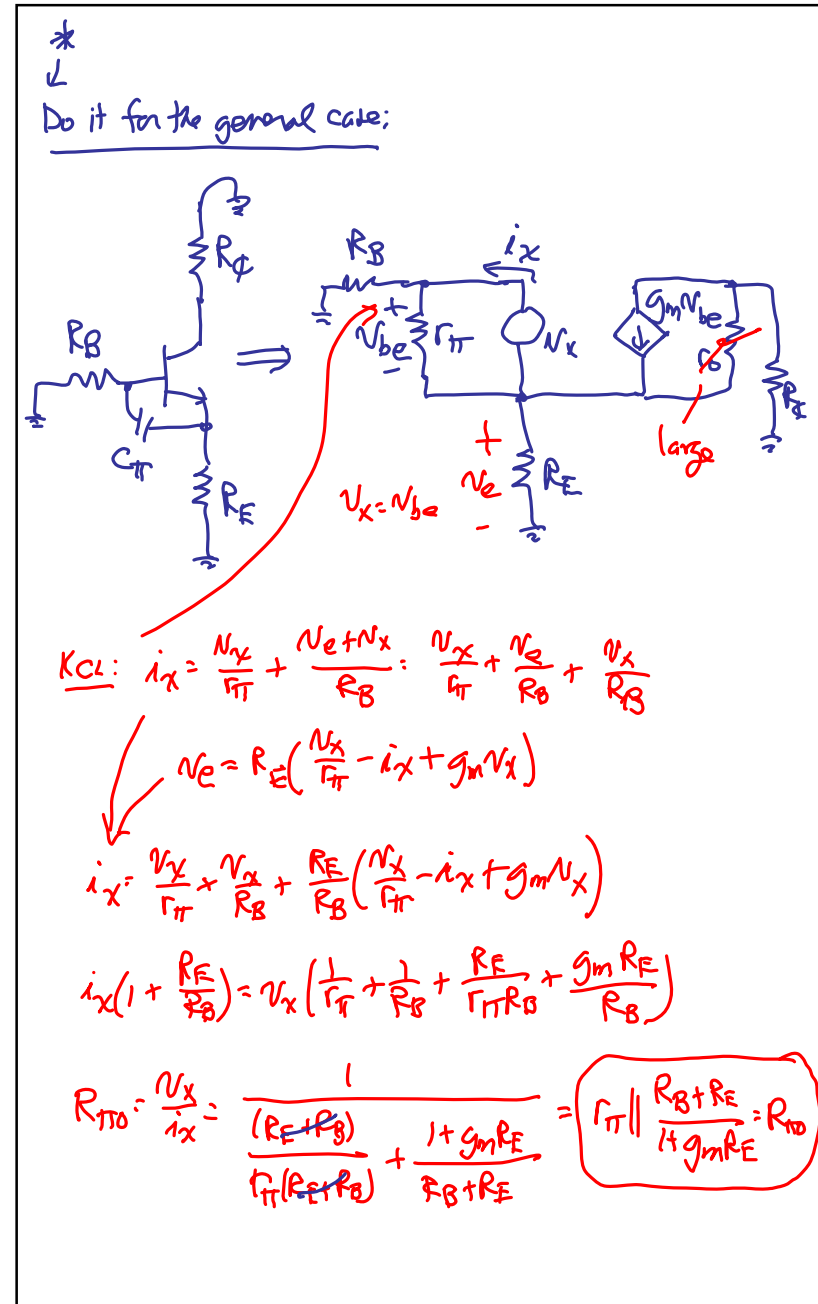 *
↓
Do it for the general case:
R_C
R_B
C_π
R_E
⇒
R_B
i_x
+
v_be
-
r_π
v_x
g_m v_be
r_o
R_C
large
+
v_e
-
R_E
v_x = v_be
KCL: i_x = v_x/r_π + (v_e + v_x)/R_B = v_x/r_π + v_e/R_B + v_x/R_B
v_e = R_E(v_x/r_π - i_x + g_m v_x)
i_x = v_x/r_π + v_x/R_B + R_E/R_B (v_x/r_π - i_x + g_m v_x)
i_x(1 + R_E/R_B) = v_x(1/r_π + 1/R_B + R_E/(r_π R_B) + g_m R_E/R_B)
R_πo = v_x/i_x = 1/((R_E+R_B)/(r_π(R_E+R_B)) + (1+g_m R_E)/(R_B+R_E)) = r_π || (R_B+R_E)/(1+g_m R_E) = R_πo